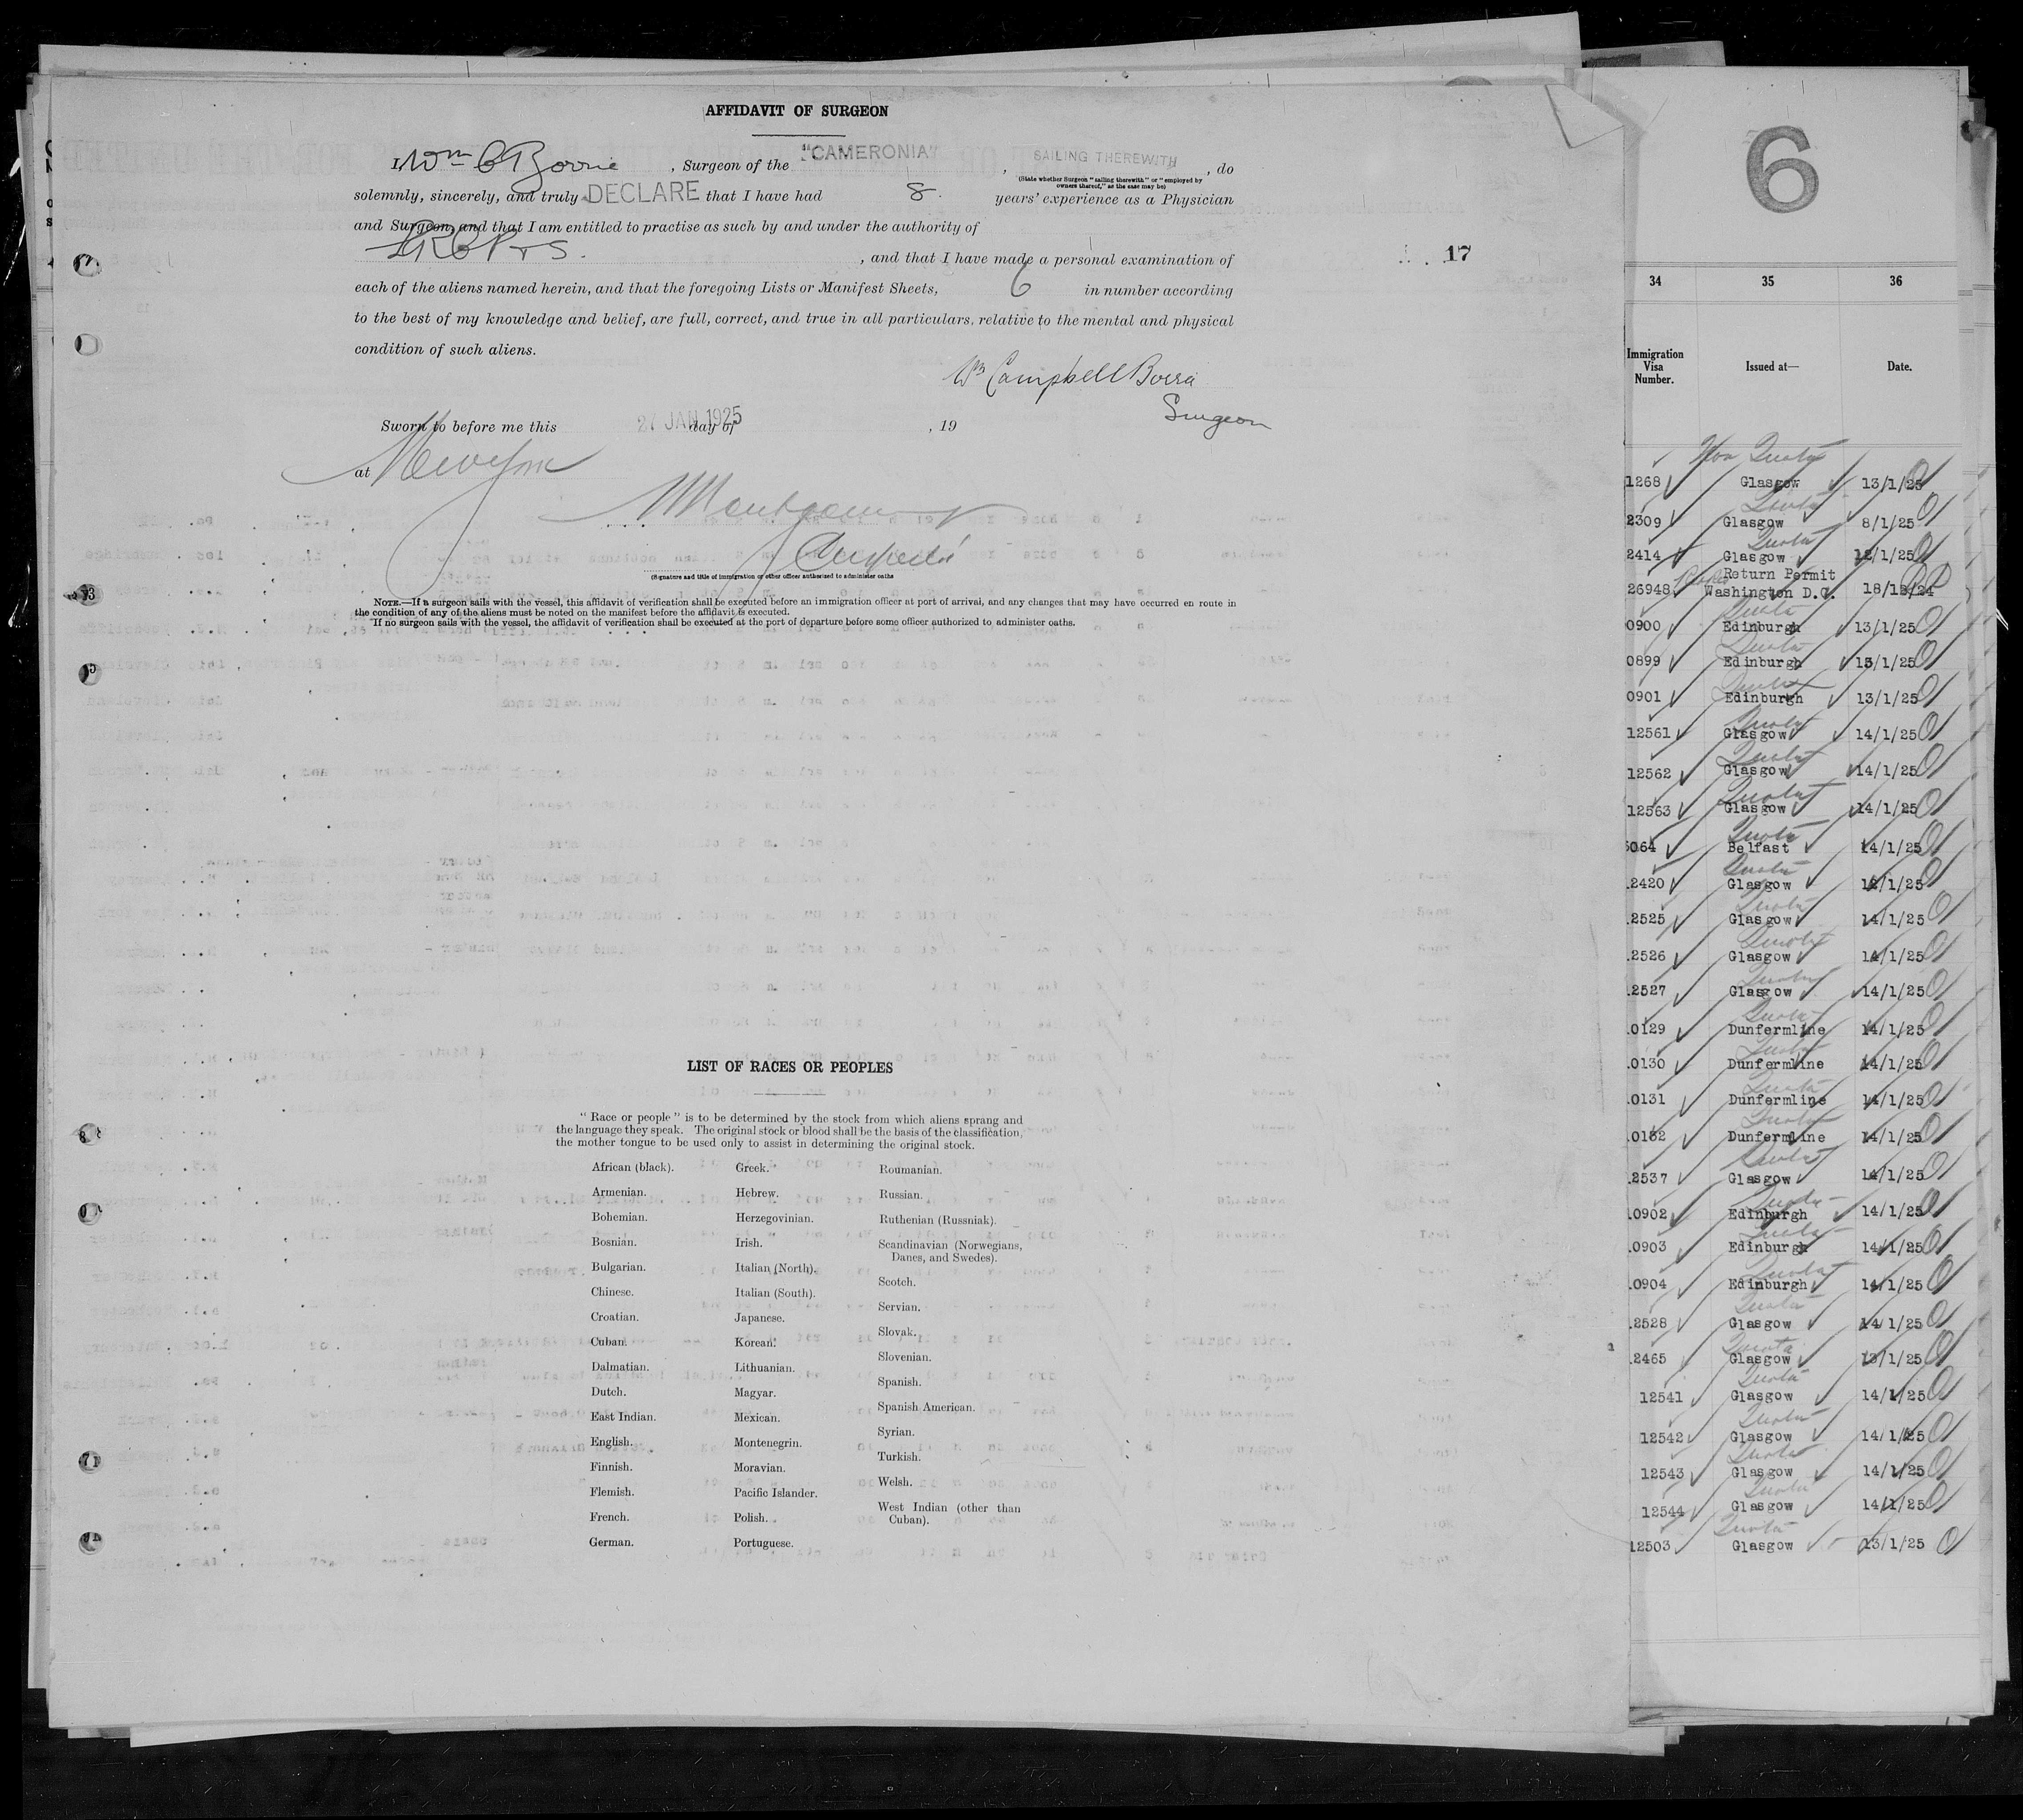 AFFIDAVIT OF SURGEON
I, Wm C Borrie, Surgeon of the "CAMERONIA", SAILING THEREWITH, do
(State whether Surgeon "sailing therewith" or "employed by
owners thereof," as the case may be)
solemnly, sincerely, and truly DECLARE that I have had 8 years' experience as a Physician
and Surgeon, and that I am entitled to practise as such by and under the authority of
LRCP+S., and that I have made a personal examination of
each of the aliens named herein, and that the foregoing Lists or Manifest Sheets, 6 in number according
to the best of my knowledge and belief, are full, correct, and true in all particulars, relative to the mental and physical
condition of such aliens.
Wm Campbell Borrie
Surgeon
Sworn to before me this 27 JAN 1925 day of , 19
at New York
(Signature and title of immigration or other officer authorized to administer oaths
NOTE.—If a surgeon sails with the vessel, this affidavit of verification shall be executed before an immigration officer at port of arrival, and any changes that may have occurred en route in
the condition of any of the aliens must be noted on the manifest before the affidavit is executed.
If no surgeon sails with the vessel, the affidavit of verification shall be executed at the port of departure before some officer authorized to administer oaths.
17
LIST OF RACES OR PEOPLES
"Race or people" is to be determined by the stock from which aliens sprang and
the language they speak. The original stock or blood shall be the basis of the classification,
the mother tongue to be used only to assist in determining the original stock.
African (black).
Armenian.
Bohemian.
Bosnian.
Bulgarian.
Chinese.
Croatian.
Cuban.
Dalmatian.
Dutch.
East Indian.
English.
Finnish.
Flemish.
French.
German.
Greek.
Hebrew.
Herzegovinian.
Irish.
Italian (North).
Italian (South).
Japanese.
Korean.
Lithuanian.
Magyar.
Mexican.
Montenegrin.
Moravian.
Pacific Islander.
Polish.
Portuguese.
Roumanian.
Russian.
Ruthenian (Russniak).
Scandinavian (Norwegians,
Danes, and Swedes).
Scotch.
Servian.
Slovak.
Slovenian.
Spanish.
Spanish American.
Syrian.
Turkish.
Welsh.
West Indian (other than
Cuban).
6
34 35 36
Immigration
Visa
Number.
Issued at—
Date.
Non Quota
1268 Glasgow 13/1/25
Quota
2309 Glasgow 8/1/25
Quota
2414 Glasgow 12/1/25
Return Permit
26948 Washington D.C. 18/12/24
Quota
0900 Edinburgh 13/1/25
Quota
0899 Edinburgh 13/1/25
Quota
0901 Edinburgh 13/1/25
Quota
12561 Glasgow 14/1/25
Quota
12562 Glasgow 14/1/25
Quota
12563 Glasgow 14/1/25
Quota
6064 Belfast 14/1/25
Quota
.2420 Glasgow 12/1/25
Quota
.2525 Glasgow 14/1/25
Quota
.2526 Glasgow 14/1/25
Quota
.2527 Glasgow 14/1/25
Quota
.0129 Dunfermline 14/1/25
Quota
.0130 Dunfermline 14/1/25
Quota
.0131 Dunfermline 14/1/25
Quota
.0132 Dunfermline 14/1/25
Quota
.2537 Glasgow 14/1/25
Quota
.0902 Edinburgh 14/1/25
Quota
.0903 Edinburgh 14/1/25
Quota
.0904 Edinburgh 14/1/25
Quota
.2528 Glasgow 14/1/25
Quota
.2465 Glasgow 13/1/25
Quota
12541 Glasgow 14/1/25
Quota
12542 Glasgow 14/1/25
Quota
12543 Glasgow 14/1/25
Quota
12544 Glasgow 14/1/25
Quota
12503 Glasgow 13/1/25